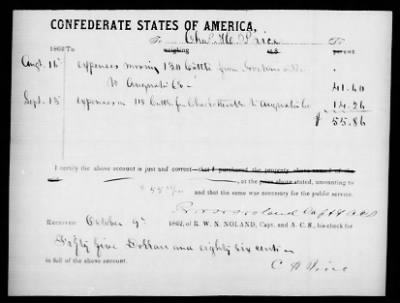 CONFEDERATE STATES OF AMERICA,
To Chas. H. Price Dr
1862 To weighing at $ per cent
Augt. 16 expenses moving 130 Cattle from
to Augusta Co - 41.60
Sept. 15 expenses on 118 Cattle fr Charlottesville to Augusta Co 14.26
$ 55.86
I certify the above account is just and correct—that I purchased the property above named of the
, at the prices above stated, amounting to
$ 55 86/100 and that the same was necessary for the public service.
R. W. N. Noland Capt & A.C.S.
RECEIVED October 9th 1862, of R. W. N. NOLAND, Capt. and A. C. S., his check for
Fifty five Dollars and eighty six cents
in full of the above account.
C H Price